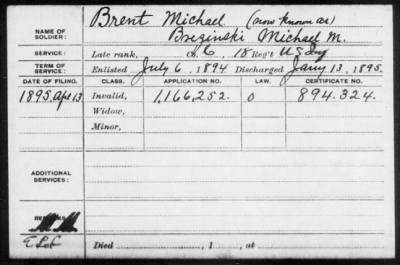 Brent Michael (now known as)
NAME OF SOLDIER: Brezinski Michael M.
SERVICE: Late rank, C, 18 Reg't U S Inf
TERM OF SERVICE: Enlisted July 6, 1894 Discharged Jany 13, 1895.
DATE OF FILING. CLASS. APPLICATION NO. LAW. CERTIFICATE NO.
1895, Apr 13 Invalid, 1,166,252. 0 894.324.
Widow,
Minor,
ADDITIONAL SERVICES:
REMARKS:
Died , 1 , at